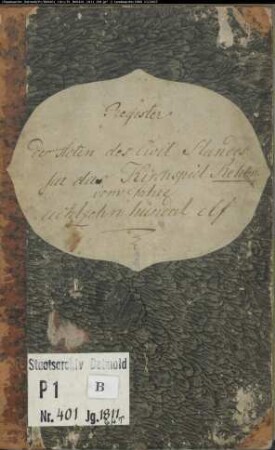 Register
der Acten des Civil Standes
für das Kirchspiel
vom Jahre
achtzehn hundert elf
Staatsarchiv Detmold
P 1
B
Nr. 401 Jg. 1811